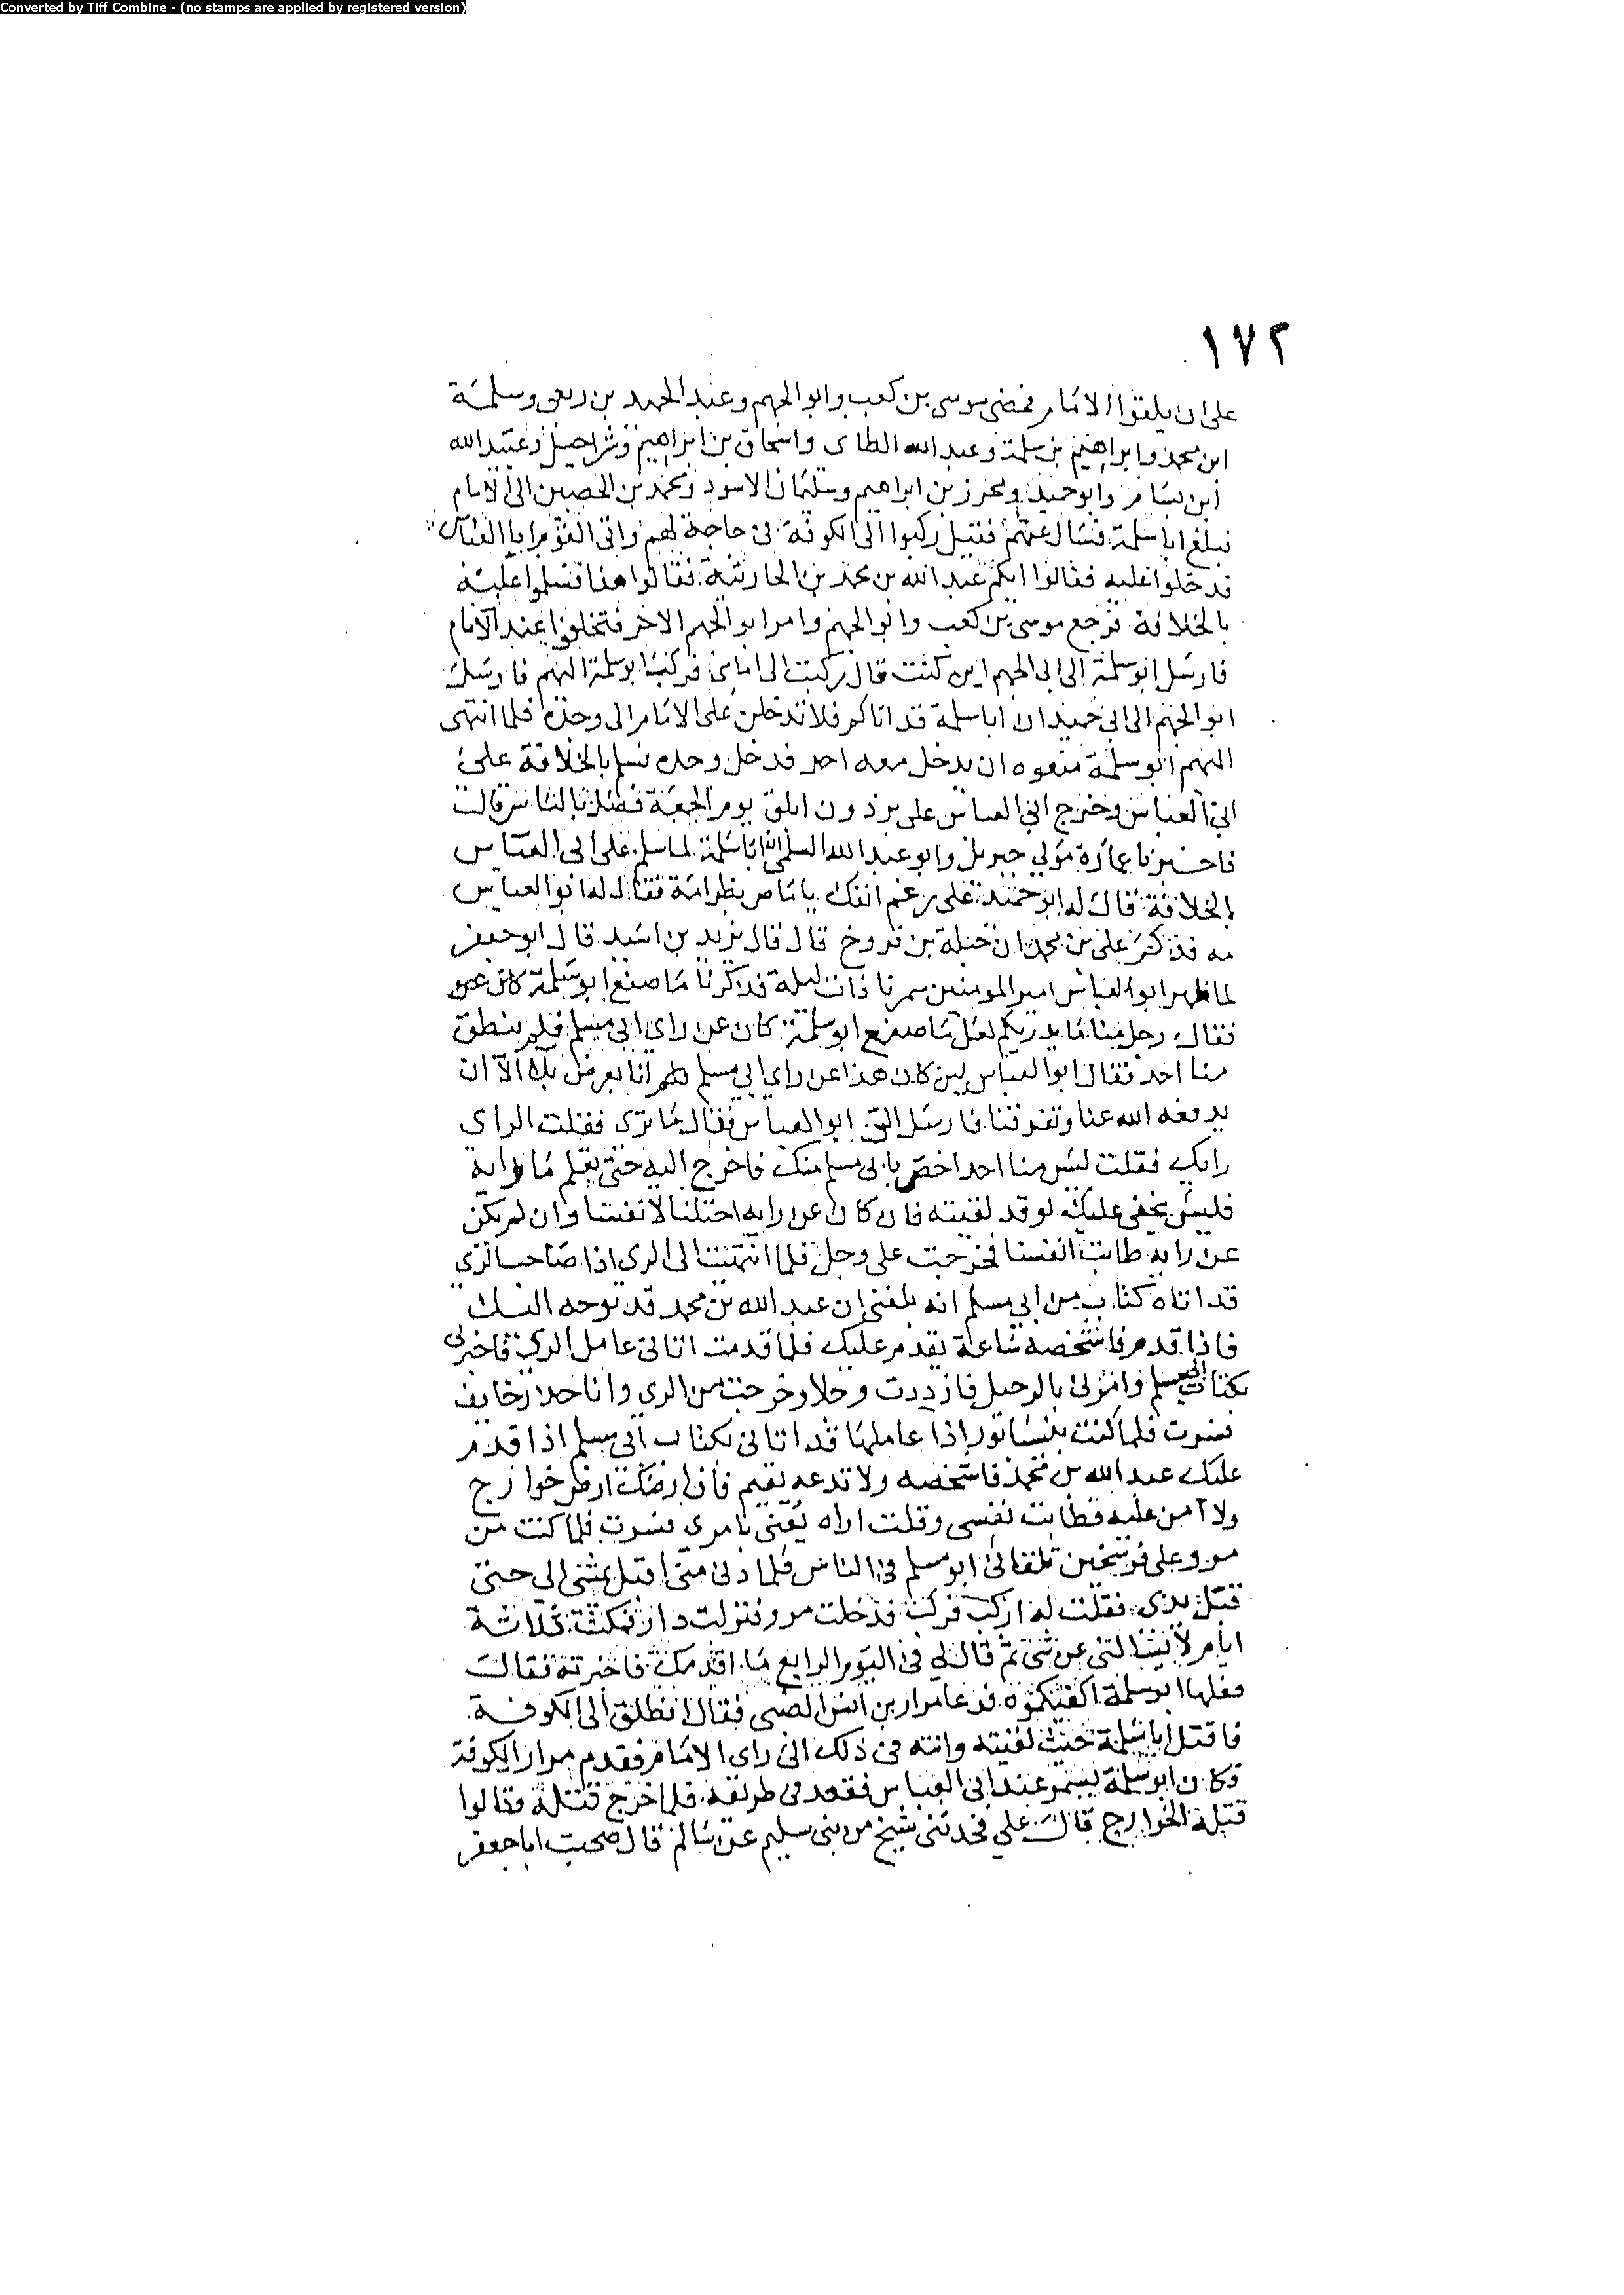 Converted by Tiff Combine - (no stamps are applied by registered version)
١٧٢
على ان يلقوا الامام فمضى موسى بن كعب وابو الجهم وعبد الحميد بن ربعى وسلمة
ابن محمد وابراهيم بن سلمة وعبد الله الطاى واسحاق بن ابراهيم وشراحيل وعبد الله
ابن بسام وابو حميد ومحرز بن ابراهيم وسليمان الاسود ومحمد بن الحصين الى الامام
فبلغ ابا سلمة فسال عنهم فقيل ركبوا الى الكوفة فى حاجة لهم واتى القوم ابا العباس
فدخلوا عليه فقالوا ايكم عبد الله بن محمد بن الحارثية فقالوا هذا فسلموا عليه
بالخلافة فرجع موسى بن كعب وابو الجهم وامر ابو الجهم الاخر فتخلفوا عند الامام
فارسل ابو سلمة الى ابى الجهم اين كنت قال ركبت الى امامى فركب ابو سلمة اليهم فارسل
ابو الجهم الى ابى حميد ان ابا سلمة قد اتاكم فلا تدخلن على الامام الى وحده فلما انتهى
اليهم ابو سلمة منعوه ان يدخل معه احد فدخل وحده فسلم بالخلافة على
ابى العباس وخرج ابى العباس على برذون ابلق يوم الجمعة فصلى بالناس قال
فاخبرنا عمارة مولى جبريل وابو عبد الله السلمى ان ابا سلمة لما سلم على ابى العباس
بالخلافة قال له ابو حميد على رغم انفك يا ماص بظر امه فقال له ابو العباس
مه فذكر على بن محمد ان جبلة بن فروخ قال قال يزيد بن اسيد قال ابو جعفر
لما ظهر ابو العباس امير المومنين سمرنا ذات ليلة فذكرنا ما صنع ابو سلمة
فقال رجل منا ما يدريكم لعل ما صنع ابو سلمة كان عن راى ابى مسلم فلم ينطق
منا احد فقال ابو العباس لين كان هذا عن راى ابى مسلم بعرض بلا الا ان
يدفعه الله عنا وتفرقنا فارسل الى ابو العباس فقال ما ترى فقلت الراى
رايك فقلت ليس منا احد اخص بابى مسلم منك فاخرج اليه حتى تعلم ما رايه
فليس يخفى عليك لو قد لقيته فان كان عن رايه احتلنا لانفسنا وان لم يكن
عن رايه طابت انفسنا فخرجت على وجل فلما انتهيت الى الرى اذا صاحب الرى
قد اتاه كتاب من ابى مسلم انه بلغنى ان عبد الله بن محمد قد توجه اليك
فاذا قدم فاشخصه ساعة يقدم عليك فلما قدمت اتانى عامل الرى فاخبرنى
بكتاب ابى مسلم وامرنى بالرحيل فازددت وجلا وخرجت من الرى وانا حذر خايف
فسرت فلما كنت بنيسابور اذا عاملها قد اتانى بكتاب ابى مسلم اذا قدم
عليك عبد الله بن محمد فاشخصه ولا تدعه يقيم فان ارضك ارض خوارج
ولا آمن عليه فطابت نفسى وقلت اراه يعنى بامرى فسرت فلما كنت من
مرو على فرسخين تلقانى ابو مسلم فى الناس فلما دنى منى اقبل يمشى الى حتى
قبل يدى فقلت له اركب فركب فدخلت مرو فنزلت دار فمكثت ثلاثة
ايام لا يسالنى عن شى ثم قال لى فى اليوم الرابع ما اقدمك فاخبرته فقال
فعلها ابو سلمة اكفيكموه فدعا مرار بن انس الضبى فقال انطلق الى الكوفة
فاقتل ابا سلمة حيث لقيته وانته فى ذلك الى راى الامام فقدم مرار الكوفة
وكان ابو سلمة يسمر عند ابى العباس فقعد فى طريقه فلما خرج قتله فقالوا
قتله الخوارج قال على فحدثنى شيخ من بنى سليم عن سالم قال صحبت ابا جعفر